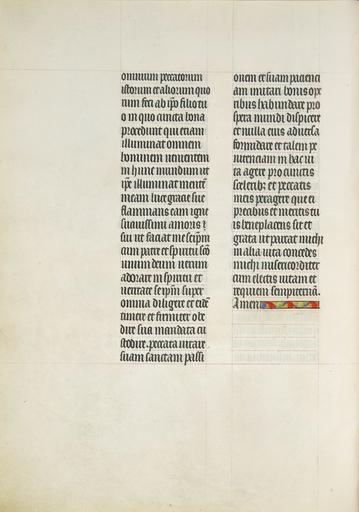 omnium peccatorum
istorum et aliorum quo
rum feci ab ip̄o filio tu
o in quo cuncta bona
procedunt qui etiam
illuminat omnem
hominem uenientem
in hunc mundum ut
ip̄e illuminat mentē
meam luce gracie sue
flammans eam igne
suauissimi amoris
sui ut faciat me seip̄m
cum patre et spiritu sc̄o
unum deum uerum
adorare in spiritu et
ueritate se ip̄m super
omnia diligere et eūdē
timere et firmiter obe
dire sua mandata cu
stodire. peccata uitare
suam sanctam passi
onem et suam pacienci
am imitari bonis ope
ribus habundare pro
spera mundi dispicere
et nulla eius aduersa
formidare et talem pe
nitenciam in hac ui
ta agere pro cunctis
sceleribꝫ et peccatis
meis peragere que ei
precibus et meritis tu
is beneplacens sit et
grata ut parcat michi
in alia uita concedes
michi misericorditer
cum electis uitam et
requiem sempiternā.
Amen